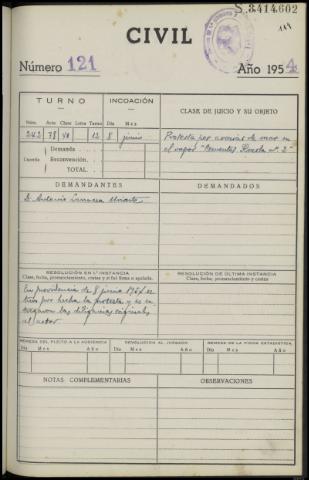 S.3414602
CIVIL
Número 121 Año 1954
TURNO INCOACIÓN CLASE DE JUICIO Y SU OBJETO
Núm. Auto Clase Letra Turno Día Mes
242 78 12 8 junio Protesta por averías de mar en
el vapor "Cementos Rezola nº 2"
Demanda
Cuantía Reconvención
TOTAL
DEMANDANTES DEMANDADOS
D. Antonio
RESOLUCIÓN EN 1.ª INSTANCIA
Clase, fecha, pronunciamiento, costas y si fué firme o apelada.
RESOLUCIÓN DE ÚLTIMA INSTANCIA
Clase, fecha, pronunciamiento y costas
En providencia de 8 junio 1954 se
tuvo por hecha la protesta y se
las diligencias originales
al actor
REMESA DEL PLEITO A LA AUDIENCIA DEVOLUCIÓN AL JUZGADO REMESA DE LA FICHA ESTADÍSTICA
Día Mes Año Día Mes Año Día Mes Año
NOTAS COMPLEMENTARIAS OBSERVACIONES